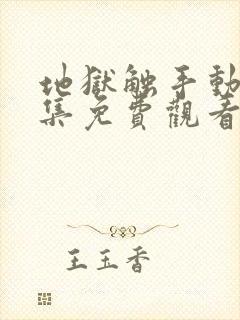 地獄触手動
集免費觀看
王玉香